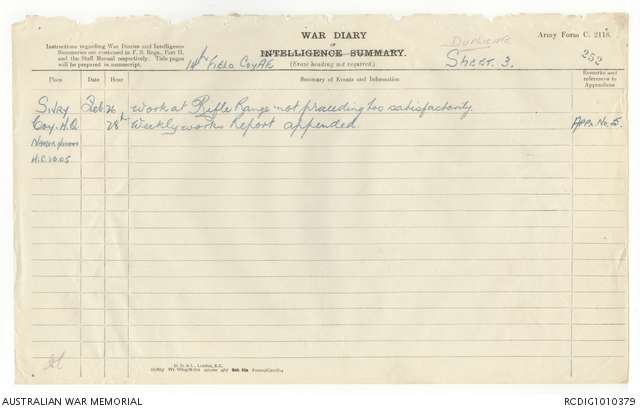 WAR DIARY
or
INTELLIGENCE SUMMARY.
(Erase heading not required.)
Instructions regarding War Diaries and Intelligence
Summaries are contained in F. S. Regs., Part II.
and the Staff Manual respectively. Title pages
will be prepared in manuscript.
14th Field Coy AE
DUPLICATE
Sheet. 3.
Army Form C. 2118.
252
Place Date Hour Summary of Events and Information Remarks and references to Appendices
Sivry Feb. 26 Work at Rifle Range not proceeding too satisfactorily.
Coy. H.Q. 28th Weekly works Report appended. Appx No. 5.
Namur
H.C. 10.05
AUSTRALIAN WAR MEMORIAL
RCDIG1010379